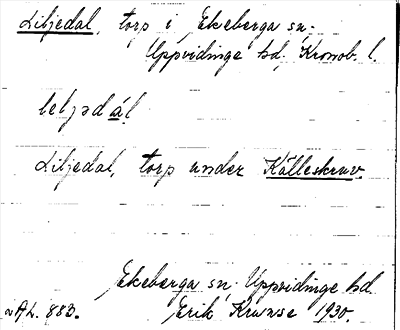 Liljedal, torp i Ekeberga sn.
Uppvidinge hd, Kronob. l.
leljedál
Liljedal, torp under Källeskruv.
Ekeberga sn. Uppvidinge hd.
Erik Kruuse 1930
AL. 883.